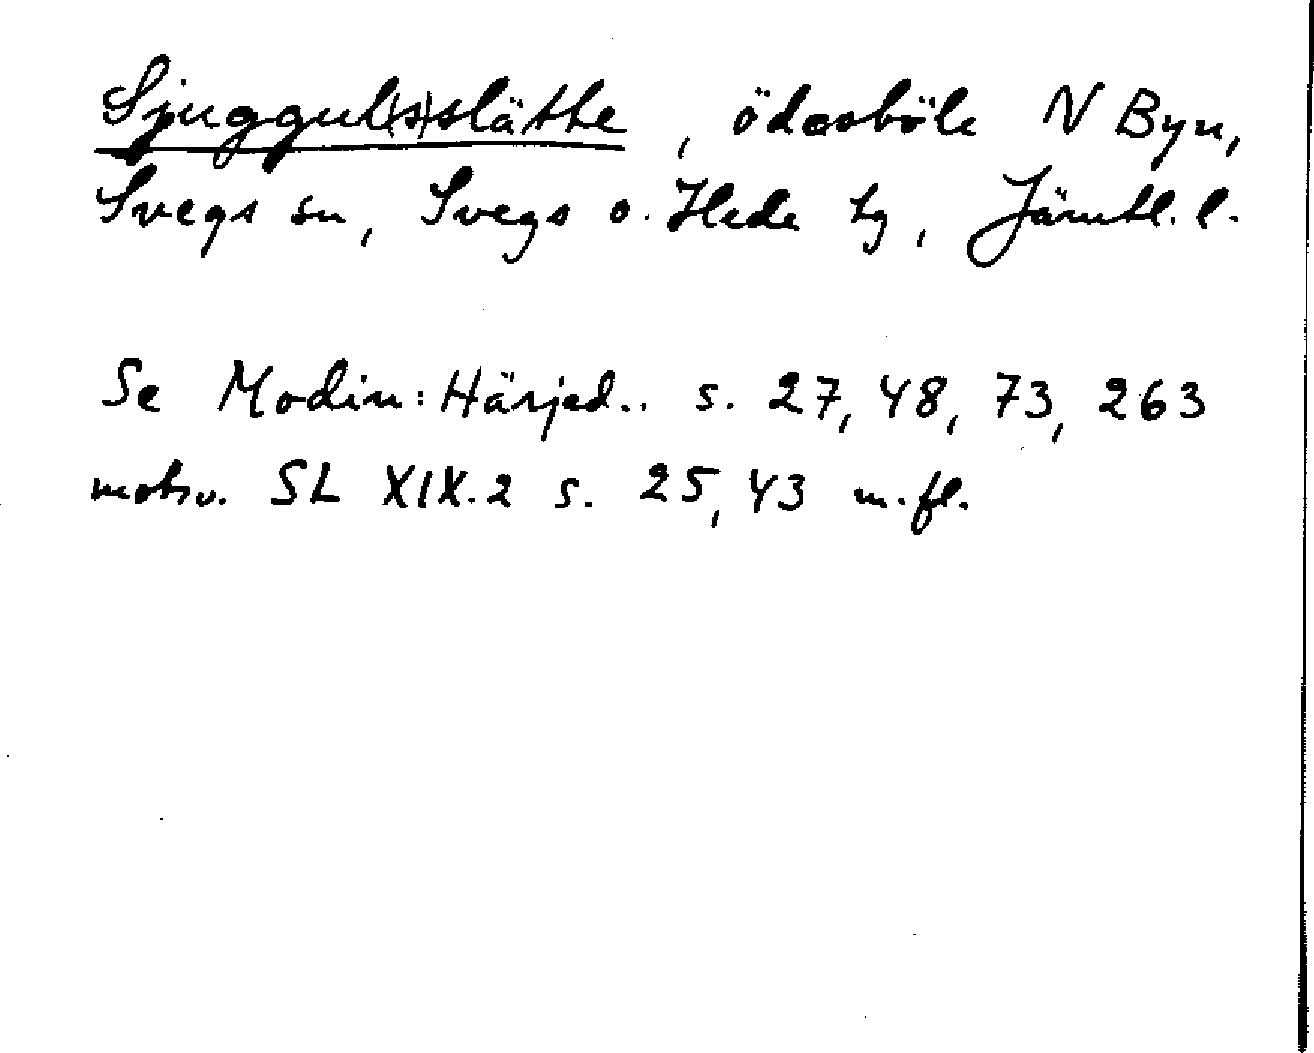 Sjuggul(s)slätte, ödesböle N Byn,
Svegs sn, Svegs o. Hede tg, Jämtl. l.
Se Modin: Härjed.. s. 27, 48, 73, 263
motsv. SL XIX.2 s. 25, 43 m.fl.